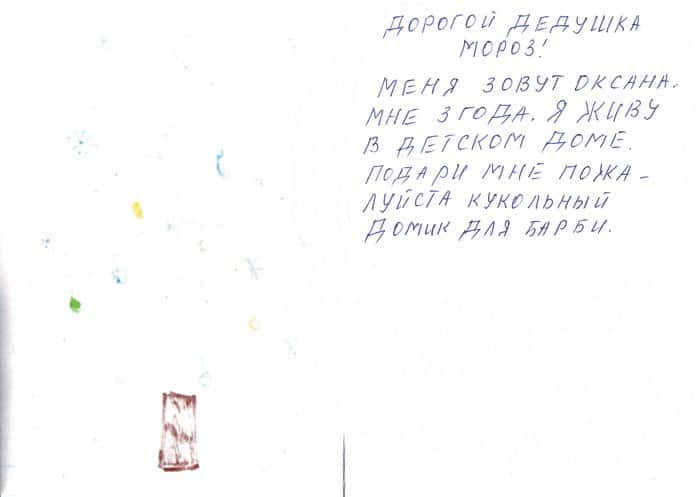 ДОРОГОЙ ДЕДУШКА
МОРОЗ!
МЕНЯ ЗОВУТ ОКСАНА.
МНЕ 3 ГОДА. Я ЖИВУ
В ДЕТСКОМ ДОМЕ.
ПОДАРИ МНЕ ПОЖА-
ЛУЙСТА КУКОЛЬНЫЙ
ДОМИК ДЛЯ БАРБИ.